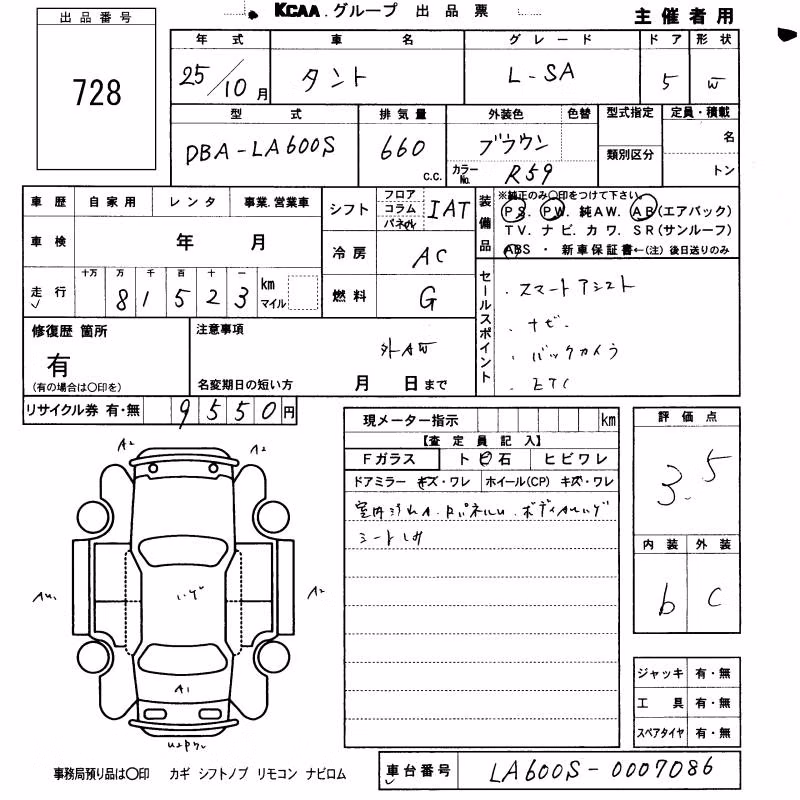 KCAA.グループ 出品票
主催者用
出品番号
728
年式 車名 グレード ドア 形状
25/10月 タント L-SA 5 W
型式 排気量 外装色 色替 型式指定 定員・積載
DBA-LA600S 660 c.c. ブラウン 名
カラーNo. R59 類別区分 トン
車歴 自家用 レンタ 事業.営業車
車検 年 月
走行 十万 万 千 百 十 一
81523 km マイル
シフト フロア コラム パネル IAT
冷房 AC
燃料 G
装備品
※純正のみ〇印をつけて下さい。
PS. PW. 純AW. AB(エアバック)
TV. ナビ. カワ. SR(サンルーフ)
ABS ・ 新車保証書←(注) 後日送りのみ
セールスポイント
・スマートアシスト
・ナビ・
・バックカメラ
・ETC
修復歴 箇所
有
(有の場合は〇印を)
注意事項
外AW
名変期日の短い方 月 日まで
リサイクル券 有・無 9550円
現メーター指示 km
【査定員記入】
Fガラス トビ石 ヒビワレ
ドアミラー キズ・ワレ ホイール(CP) キズ・ワレ
シートしみ
評価点
3.5
内装 外装
b C
A2 A2
A2
A1
ジャッキ 有・無
工具 有・無
スペアタイヤ 有・無
事務局預り品は〇印 カギ シフトノブ リモコン ナビロム
車台番号 LA600S-0007086